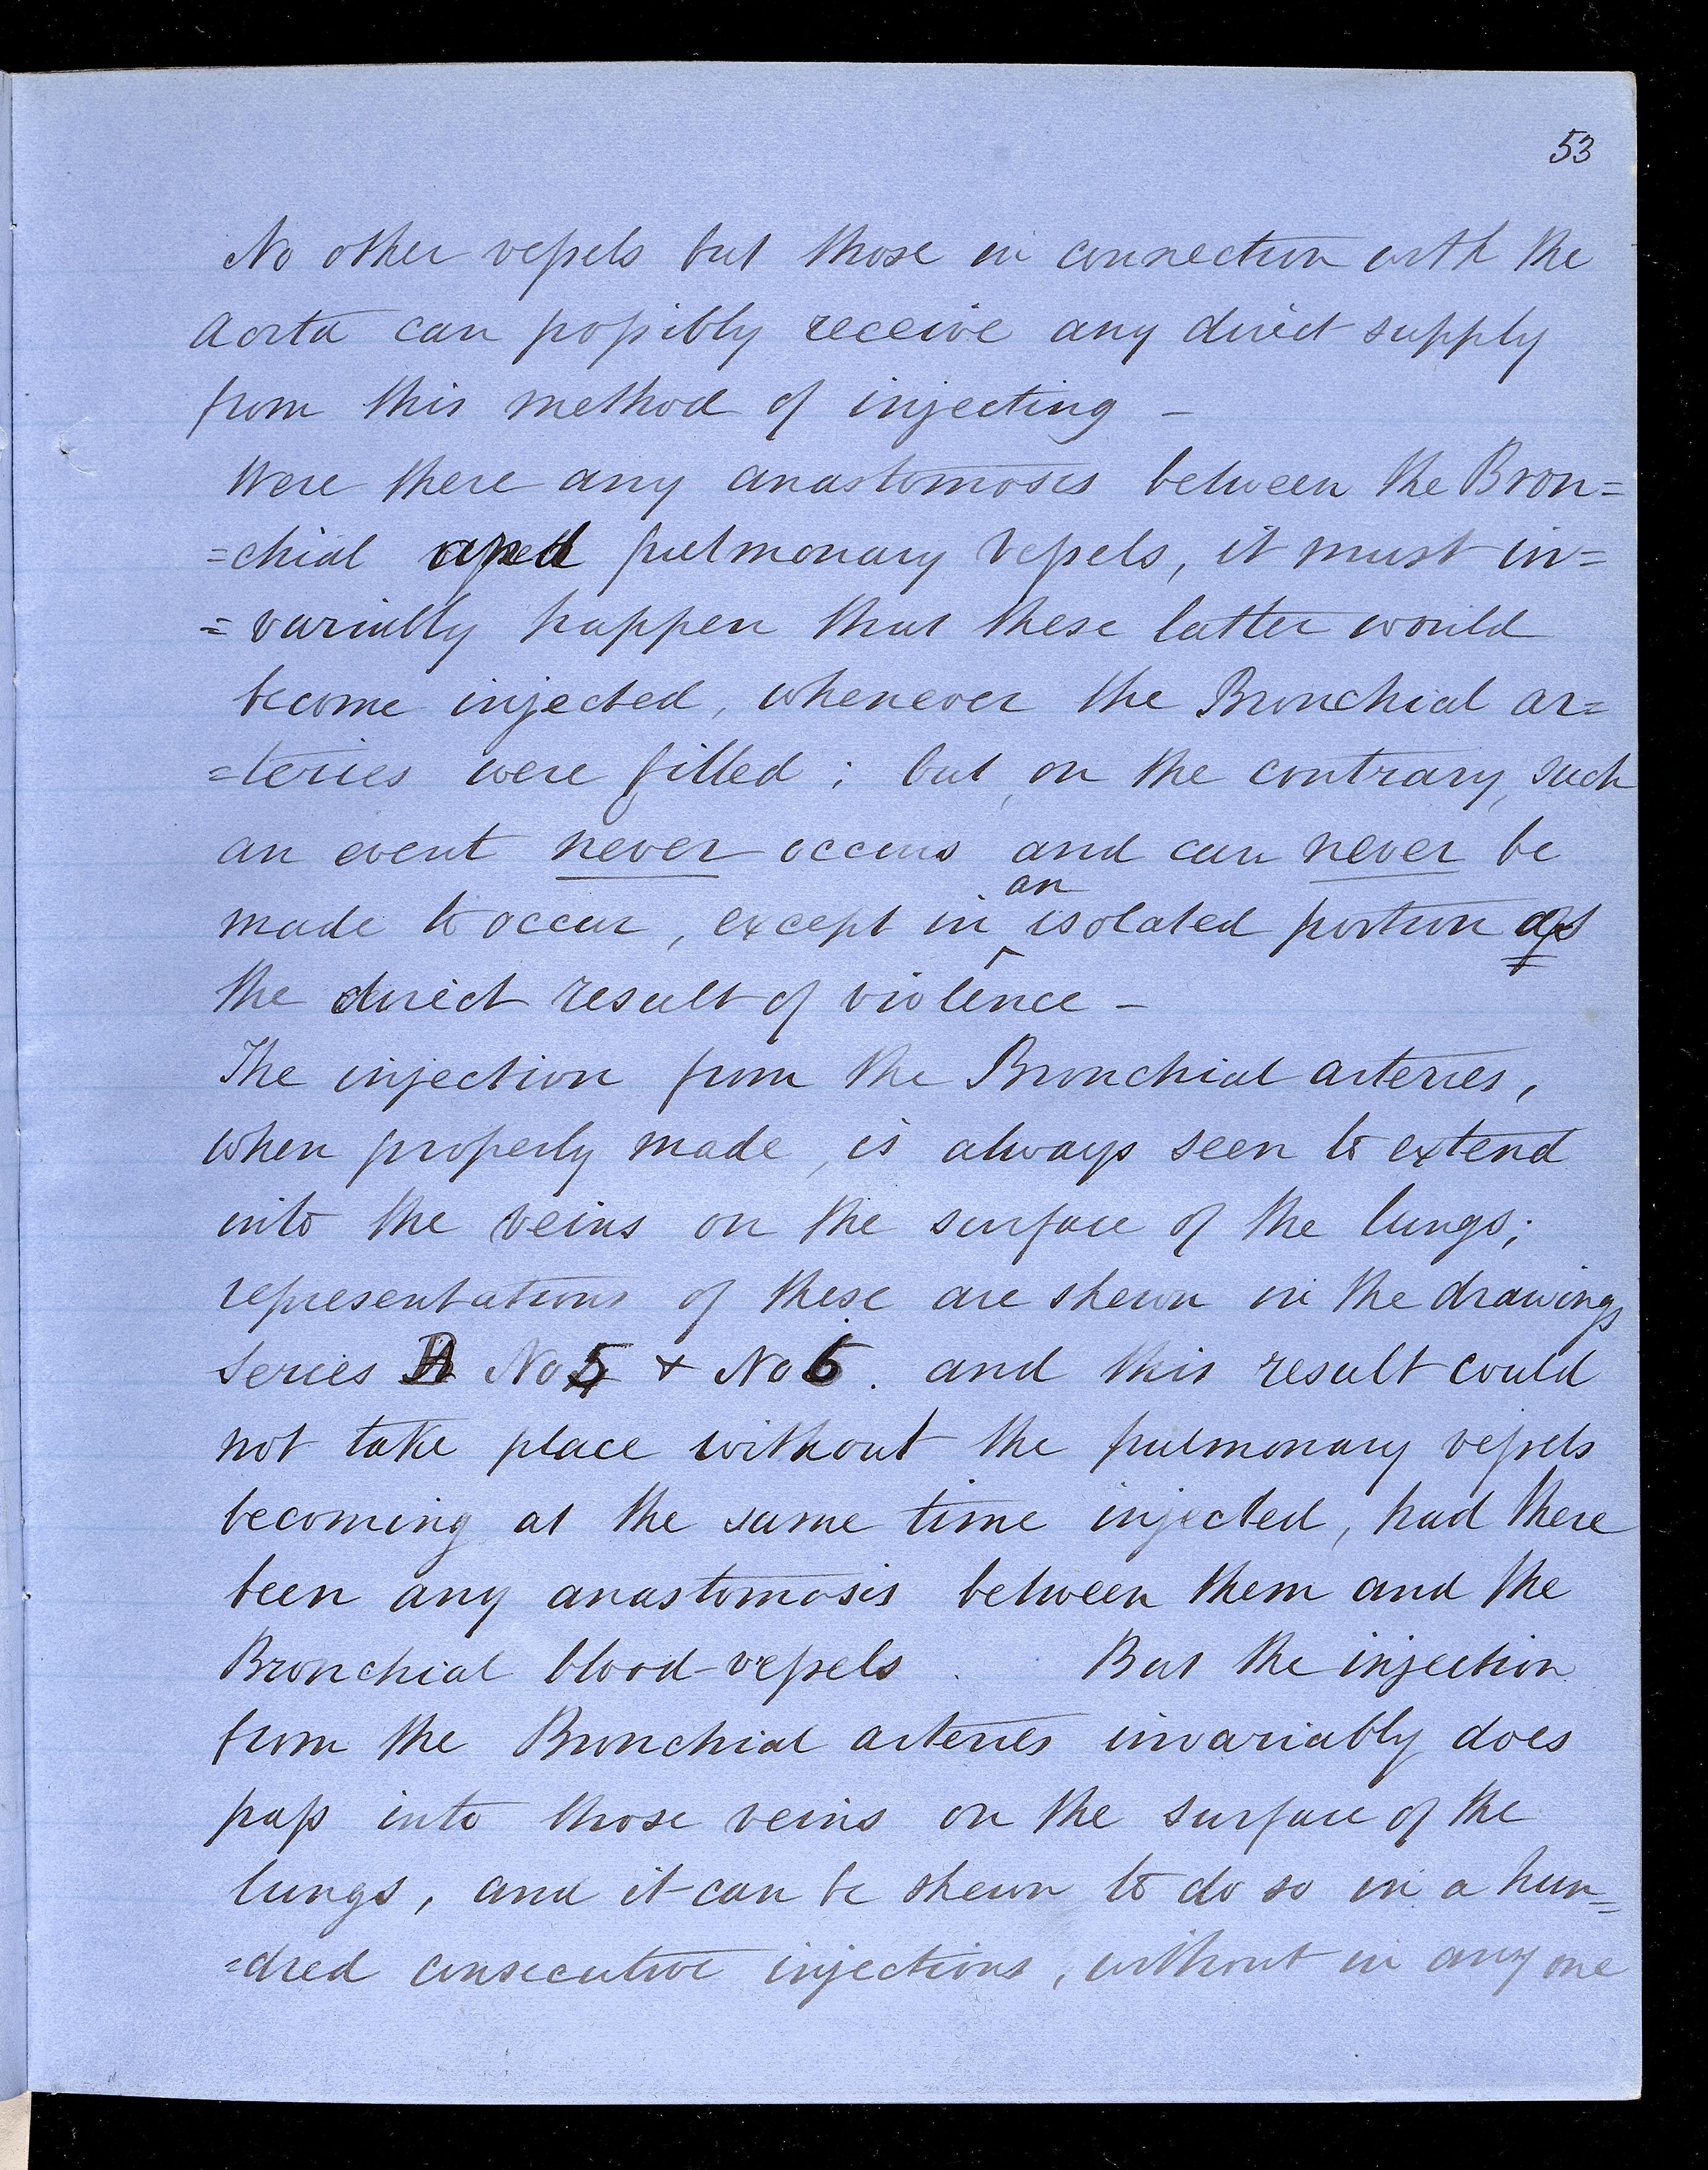 53
No other vessels but those in connection with the
Aorta can possibly receive any direct supply
from this method of injecting –
Were there any anastomosis between the Bron=
=chial and pulmonary vessels, it must in=
=variably happen that these latter would
become injected, whenever the Bronchial ar=
=teries were filled; but, on the contrary, such
an event never occurs and can never be
an
made to occur, except in isolated portion as
the direct result of violence –
The injection from the Bronchial arteries,
when properly made, is always seen to extend
into the veins on the surface of the lungs;
representations of these are shewn in the drawings
Series No 5 & No 6. and this result could
not take place without the pulmonary vessels
becoming at the same time injected, had there
been any anastomosis between them and the
Bronchial blood-vessels. But the injection
from the Bronchial arteries invariably does
pass into those veins on the surface of the
lungs, and it can be shewn to do so in a hun=
=dred consecutive injections, without in any one